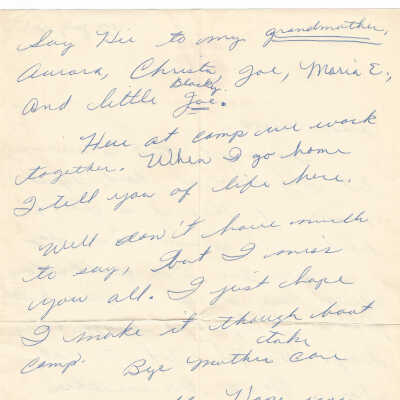 Say Hie to my grandmother,
Aurora, Christa, Joe, Maria E.,
And little Blacky Joe.
Here at camp we work
together. When I go home
I tell you of life here.
Well don't have much
to say, but I miss
you all. I just hope
I make it though boot
camp. Bye Mother take Care
Hope